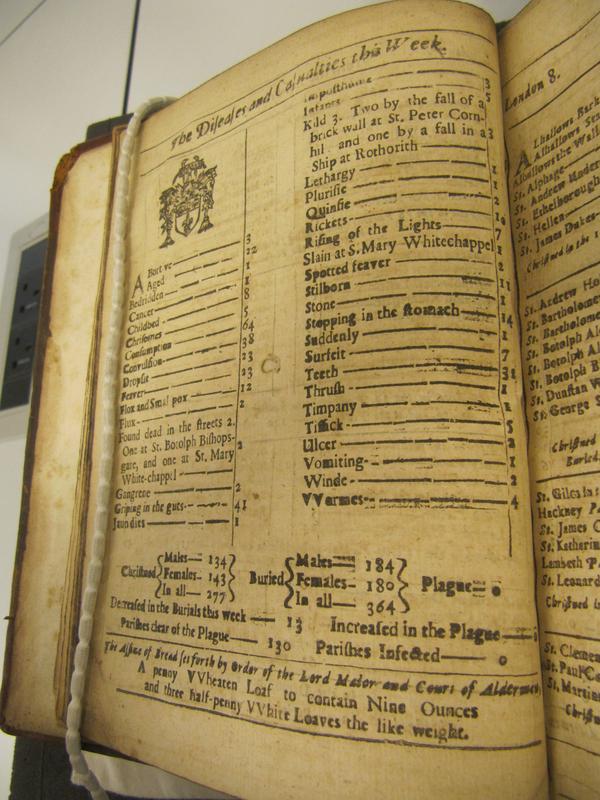 The Diseases and Casualties this Week.
Abortive — 3
Aged — 12
Bedridden — 1
Cancer — 1
Childbed — 8
Chrisomes — 5
Consumption — 64
Convulsion — 38
Dropsie — 23
Feaver — 23
Flox and Small pox — 12
Flux — 2
Found dead in the streets 2.
One at St. Botolph Bishops-
gate, and one at St. Mary
White-chappel — 2
Gangrene — 2
Griping in the guts — 41
Jaundies — 1
Imposthume — 3
Infants — 5
Kild 3. Two by the fall of a
brick wall at St. Peter Corn-
hil and one by a fall in a 3
Ship at Rothorith
Lethargy — 1
Plurisie — 1
Quinsie — 2
Rickets — 10
Rising of the Lights — 7
Slain at S. Mary Whitechappel 1
Spotted feaver — 2
Stilborn — 11
Stone — 1
Stopping in the stomach — 14
Suddenly — 1
Surfeit — 7
Teeth — 31
Thrush — 1
Timpany — 1
Tissick — 5
Ulcer — 2
Vomiting — 1
Winde — 2
VVormes — 4
Christned { Males — 134 Females — 143 In all — 277 }
Buried { Males — 184 Females — 180 In all — 364 }
Plague — 0
Decreased in the Burials this week — 13
Increased in the Plague — 0
Parishes clear of the Plague — 130
Parishes Infected — 0
The Assise of Bread set forth by Order of the Lord Maior and Court of Aldermen,
A penny VVheaten Loaf to contain Nine Ounces
and three half-penny VVhite Loaves the like weight.
London 8.
Alhallows Bark
Alhallows
Alhallows the Wall
St. Alphage
St. Andrew
St. Ethelborough
St. Hellen
St. James Dukes
Christned in the
St. Andrew Ho
St. Bartholome
St. Bartholome
St. Botolph Al
St. Botolph Al
St. Botolph B
St. Dunstan W
St. George S
Christned
Buried
St. Giles in t
Hackney P
St. James C
St. Katharin
Lambeth P
St. Leonard
Christned in
St. Clemen
St. Paul Co
St. Martin
Christn